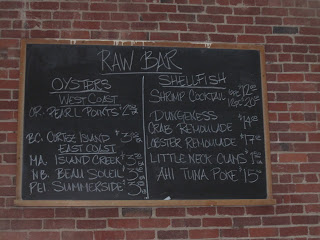 RAW BAR
OYSTERS
WEST COAST
OR. PEARL POINTS
B.C. CORTEZ ISLAND
EAST COAST
MA. ISLAND CREEK
N.B. BEAU SOLEIL
PEI. SUMMERSIDE
SHELLFISH
SHRIMP COCKTAIL
DUNGENESS
CRAB REMOULADE
LOBSTER REMOULADE
LITTLE NECK CLAMS
AHI TUNA POKE